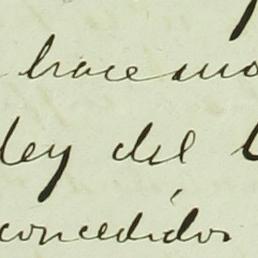 hace mo
ley del
concedidos